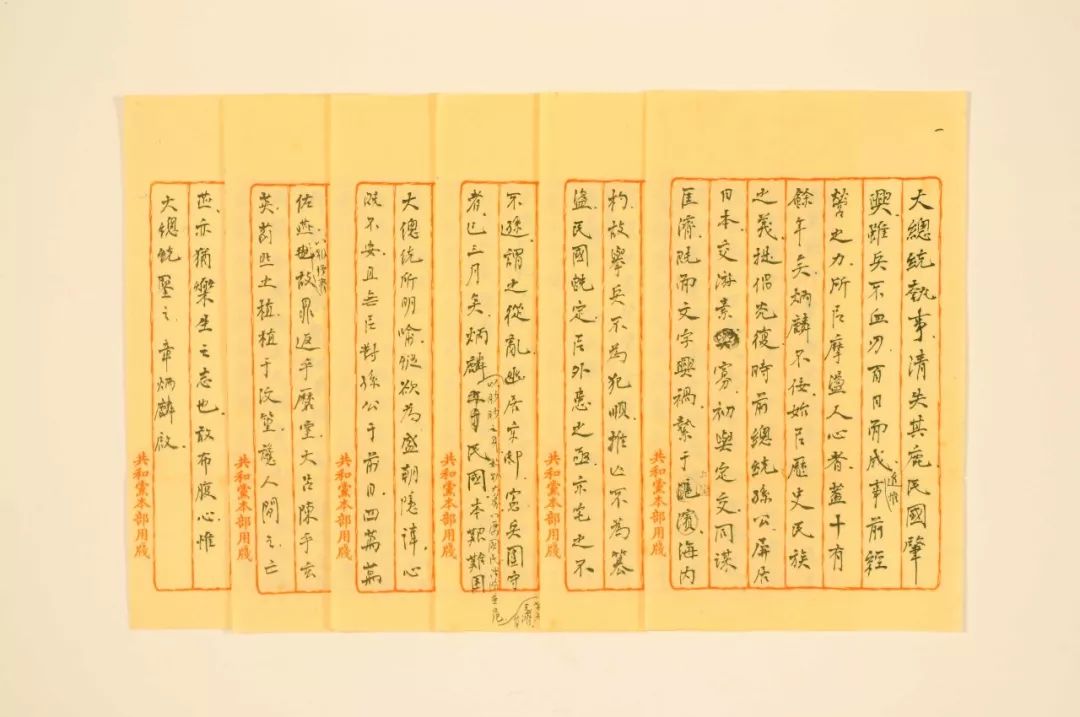 一
大總統執事清失其鹿民國肇
興雖兵不血刃百日而成追惟事前經
營之力所以摩盪人心者蓋十有
餘年矣炳麟不佞始以歷史民族
之義提倡光復時前總統孫公屏居
日本交游素寡初與定交同謀
匡濟既而文字興禍縶于滬濱海内
共和黨本部用牋
杓故舉兵不為犯順推亡不為篡
盜民國既定以外患之亟亦宅之不
共和黨本部用牋
不遜謂之從亂幽居京邸憲兵圍守
者已三月矣炳麟
民國本艱難困
共和黨本部用牋
大總統所明喻從欲為盛朝隱諱心
既不安且無以對孫公于前日四萬萬
共和黨本部用牋
佐燕 故鼎返乎磨室大呂陳乎玄
英薊丘之植植于汶篁讓人間之亡
共和黨本部用牋
燕亦猶樂生之志也敢布腹心惟
大總統鑒之章炳麟啟
共和黨本部用牋